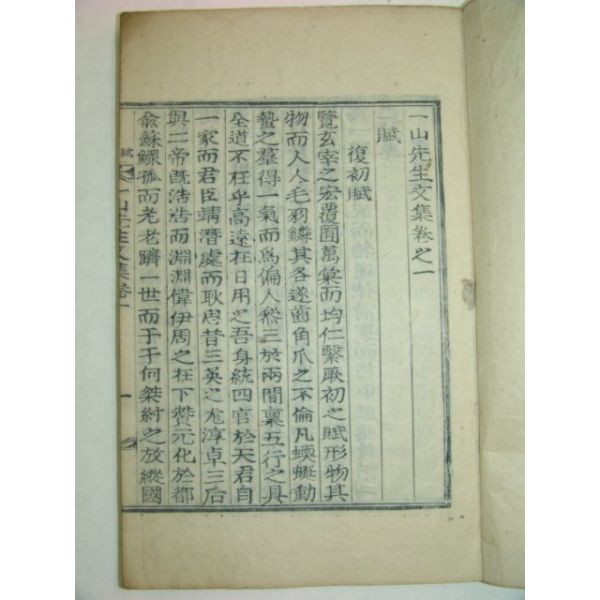 一山先生文集卷之一
賦
復初賦
覽玄宰之宏覆囿萬彙而均仁繄厥初之賦形物其
物而人人毛羽鱗其各遂齒角爪之不倫凡蝡蜒動
蟄之羣得一氣而爲偏人叅三於兩間稟五行之具
全道不在乎高遠在日用之吾身統四官於天君自
一家而君臣靖潛處而耿思昔三英之尨淳卓三后
與二帝旣浩浩而淵淵偉伊周之在下贊元化於都
兪蘇鰥孤而老老躋一世而于于何桀紂之放縱國
賦
一山先生文集卷一
一